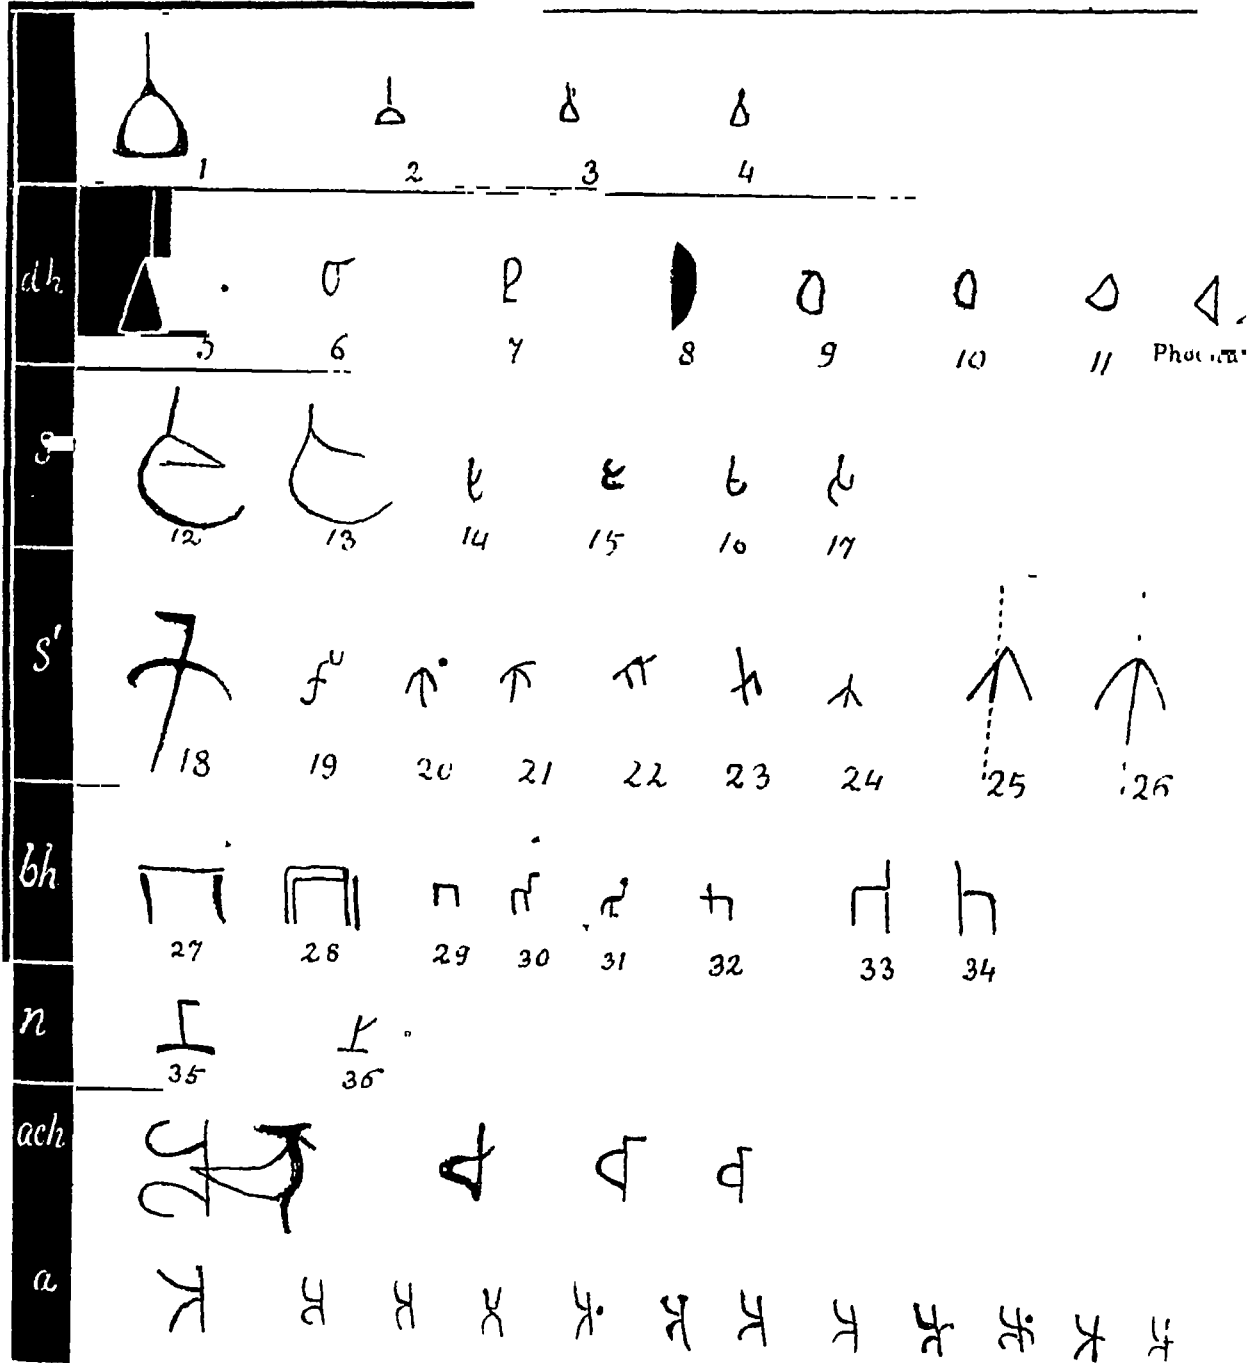 1 2 3 4
dh
5 6 7 8 9 10 11
s
12 13 14 15 16 17
s'
18 19 20 21 22 23 24 25 26
bh
27 28 29 30 31 32 33 34
n
35 36
ach
a